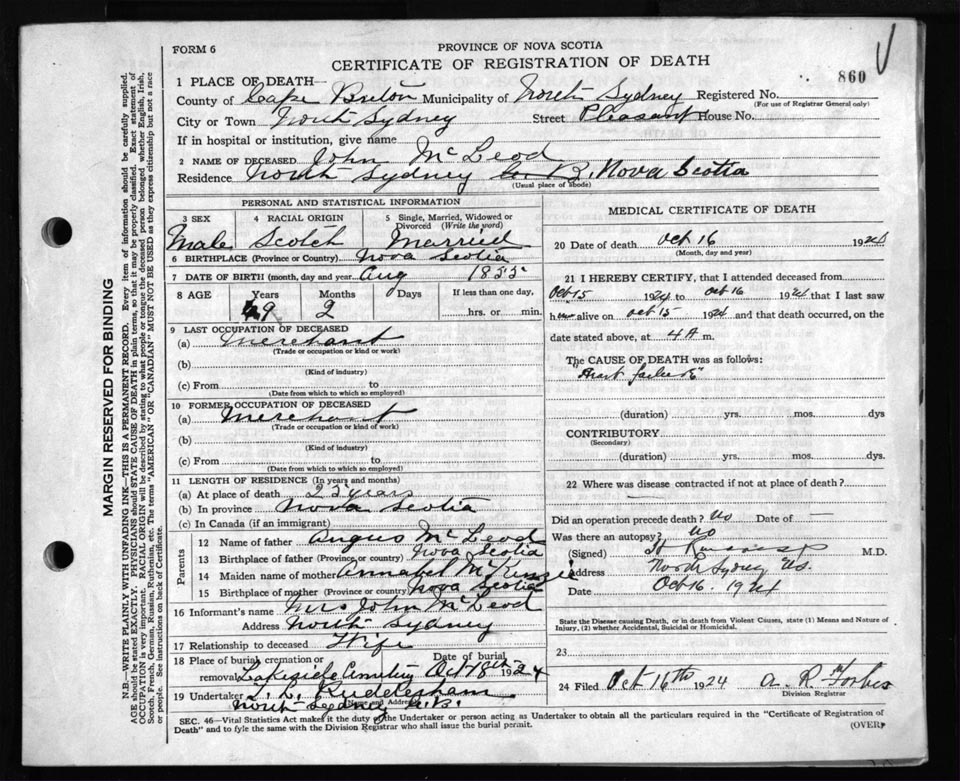 FORM 6
PROVINCE OF NOVA SCOTIA
CERTIFICATE OF REGISTRATION OF DEATH
860
1 PLACE OF DEATH—
County of Cape Breton Municipality of North Sydney Registered No.
(For use of Registrar General only)
City or Town North Sydney Street Pleasant House No.
If in hospital or institution, give name
2 NAME OF DECEASED John McLeod
Residence North Sydney C. B. Nova Scotia
(Usual place of abode)
PERSONAL AND STATISTICAL INFORMATION
3 SEX 4 RACIAL ORIGIN 5 Single, Married, Widowed or Divorced (Write the word)
Male Scotch Married
6 BIRTHPLACE (Province or Country) Nova Scotia
7 DATE OF BIRTH (month, day and year) Aug 1855
8 AGE Years Months Days If less than one day,
69 2 hrs. or min.
9 LAST OCCUPATION OF DECEASED
(a) Merchant
(Trade or occupation or kind of work)
(b)
(Kind of industry)
(c) From to
(Date from which to which so employed)
10 FORMER OCCUPATION OF DECEASED
(a) Merchant
(Trade or occupation or kind of work)
(b)
(Kind of industry)
(c) From to
(Date from which to which so employed)
11 LENGTH OF RESIDENCE (In years and months)
(a) At place of death 25 years
(b) In province Nova Scotia
(c) In Canada (if an immigrant)
Parents
12 Name of father Angus McLeod
13 Birthplace of father (Province or country) Nova Scotia
14 Maiden name of mother Annabel McKenzie
15 Birthplace of mother (Province or country) Nova Scotia
16 Informant's name Mrs John McLeod
Address North Sydney
17 Relationship to deceased Wife
18 Place of burial, cremation or removal Lakeside Cemetery Date of burial Oct 18th 1924
19 Undertaker T. L. Ruddleham
(Name and Address)
North Sydney C.B.
MEDICAL CERTIFICATE OF DEATH
20 Date of death Oct 16 1924
(Month, day and year)
21 I HEREBY CERTIFY, that I attended deceased from
Oct 15 1924 to Oct 16 1924 that I last saw
him alive on Oct 15 1924 and that death occurred, on the
date stated above, at 4 A m.
The CAUSE OF DEATH was as follows:
Heart failure
(duration) yrs. mos. dys
CONTRIBUTORY
(Secondary)
(duration) yrs. mos. dys.
22 Where was disease contracted if not at place of death?
Did an operation precede death? No Date of —
Was there an autopsy? No
(Signed) M.D.
Address North Sydney NS.
Date Oct 16. 1924
State the Disease causing Death, or in death from Violent Causes, state (1) Means and Nature of Injury, (2) whether Accidental, Suicidal or Homicidal.
23
24 Filed Oct 16th 1924 A. R. Forbes
Division Registrar
SEC. 46—Vital Statistics Act makes it the duty of the Undertaker or person acting as Undertaker to obtain all the particulars required in the "Certificate of Registration of
Death" and to fyle the same with the Division Registrar who shall issue the burial permit.
(OVER)
MARGIN RESERVED FOR BINDING
N.B.—WRITE PLAINLY WITH UNFADING INK—THIS IS A PERMANENT RECORD. Every item of information should be carefully supplied.
AGE should be stated EXACTLY. PHYSICIANS should STATE CAUSE OF DEATH in plain terms, so that it may be properly classified. Exact statement of
OCCUPATION is very important. RACIAL ORIGIN will be described by stating to what people or tongue the deceased person belonged whether English, Irish,
Scotch, French, German, Russian, Ruthenian, etc. The terms "AMERICAN" OR "CANADIAN" MUST NOT BE USED as they express citizenship but not a race
or people. See instructions on back of Certificate.